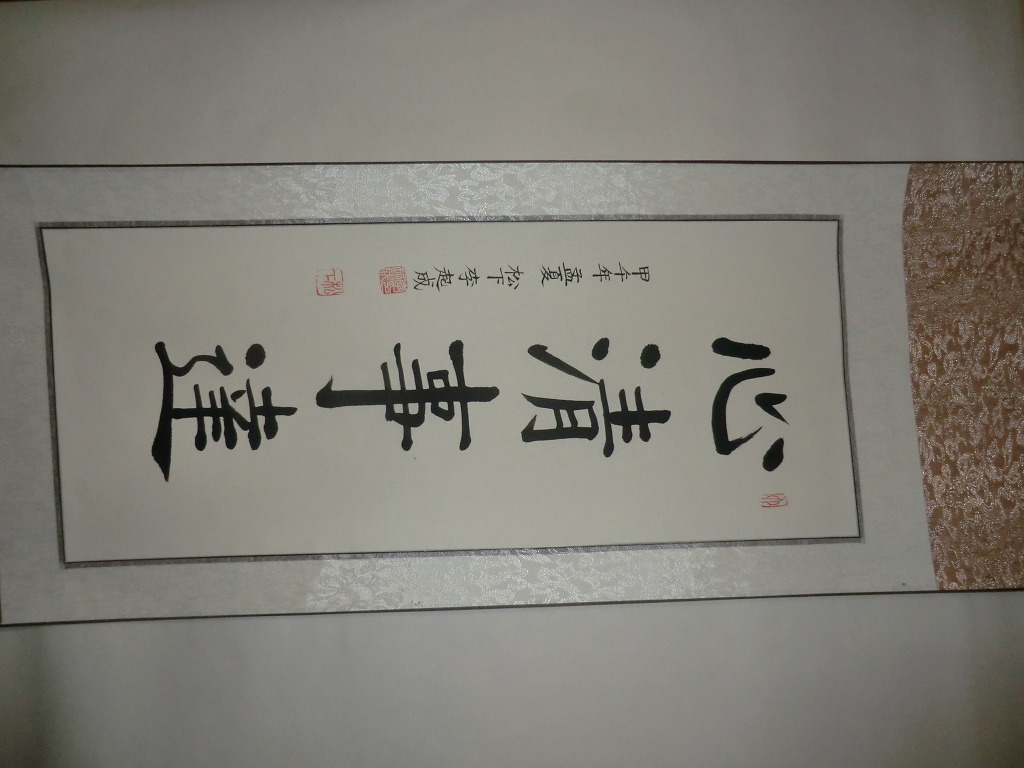 心清事達
甲午年 孟夏 松下李起成